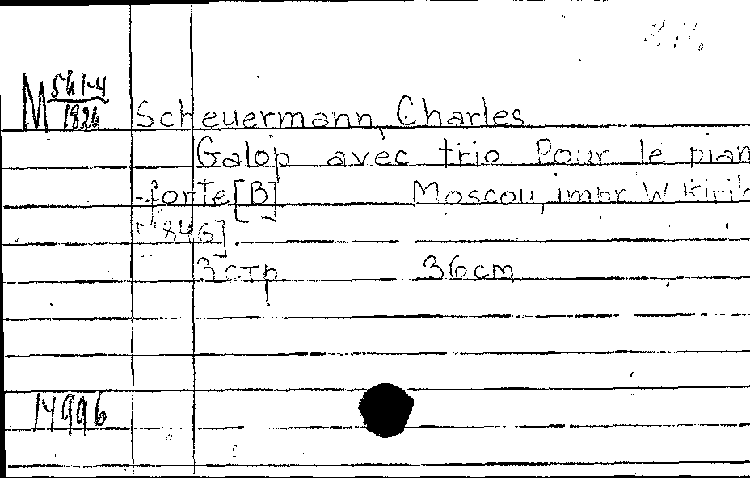 M 561-4/1826 Scheuermann, Charles
Galop avec trio Pour le pian
-forte [B] Moscou, impr W Kiril
[1846].
3 стр 36 cm
M996